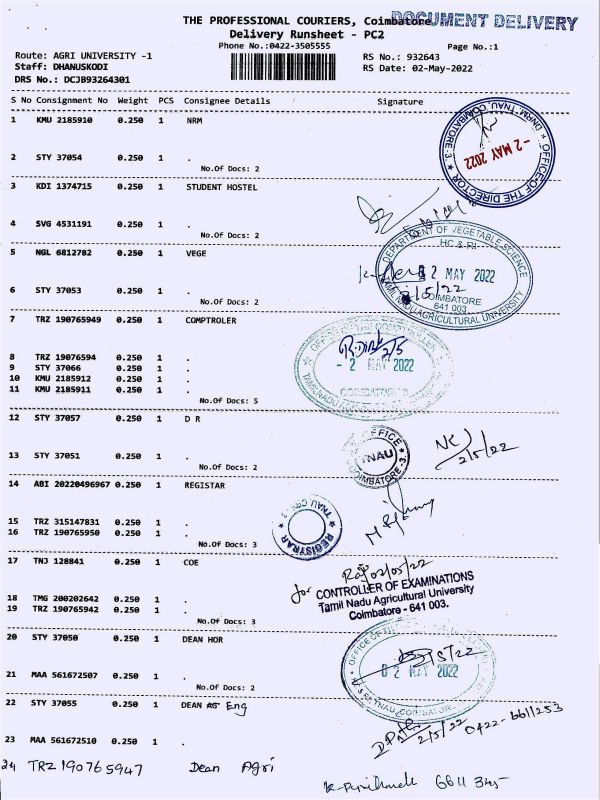 THE PROFESSIONAL COURIERS, Coimbatore
DOCUMENT DELIVERY
Delivery Runsheet - PC2
Phone No.:0422-3505555
Page No.:1
Route: AGRI UNIVERSITY -1
RS No.: 932643
Staff: DHANUSKODI
RS Date: 02-May-2022
DRS No.: DCJB93264301
S No Consignment No Weight PCS Consignee Details Signature
1 KMU 2185910 0.250 1 NRM
2 STY 37054 0.250 1 .
No.Of Docs: 2
OFFICE OF THE DIRECTOR
DNRM, TNAU, COIMBATORE-3
-2 MAY 2022
3 KDI 1374715 0.250 1 STUDENT HOSTEL
4 SVG 4531191 0.250 1 .
No.Of Docs: 2
5 NGL 6812782 0.250 1 VEGE
6 STY 37053 0.250 1 .
No.Of Docs: 2
DEPARTMENT OF VEGETABLE SCIENCE
HC & RI
02 MAY 2022
2/5/22
COIMBATORE
641 003.
TAMIL NADU AGRICULTURAL UNIVERSITY
7 TRZ 190765949 0.250 1 COMPTROLER
8 TRZ 19076594 0.250 1 .
9 STY 37066 0.250 1 .
10 KMU 2185912 0.250 1 .
11 KMU 2185911 0.250 1 .
No.Of Docs: 5
2/5
- 2 MAY 2022
12 STY 37057 0.250 1 D R
13 STY 37051 0.250 1 .
No.Of Docs: 2
OFFICE
TNAU
COIMBATORE-3
NK
2/5/22
14 ABI 20220496967 0.250 1 REGISTAR
15 TRZ 315147831 0.250 1 .
16 TRZ 190765950 0.250 1 .
No.Of Docs: 3
REGISTRAR
TNAU
17 TNJ 128841 0.250 1 COE
18 TMG 200202642 0.250 1 .
19 TRZ 190765942 0.250 1 .
No.Of Docs: 3
02/05/22
for CONTROLLER OF EXAMINATIONS
Tamil Nadu Agricultural University
Coimbatore - 641 003.
20 STY 37050 0.250 1 DEAN HOR
21 MAA 561672507 0.250 1 .
No.Of Docs: 2
OFFICE OF THE
2/5/22
02 MAY 2022
22 STY 37055 0.250 1 DEAN AG Eng
23 MAA 561672510 0.250 1 .
2/5/22 0422-6611253
24 TRZ 190765947 Dean Agri
6611 345